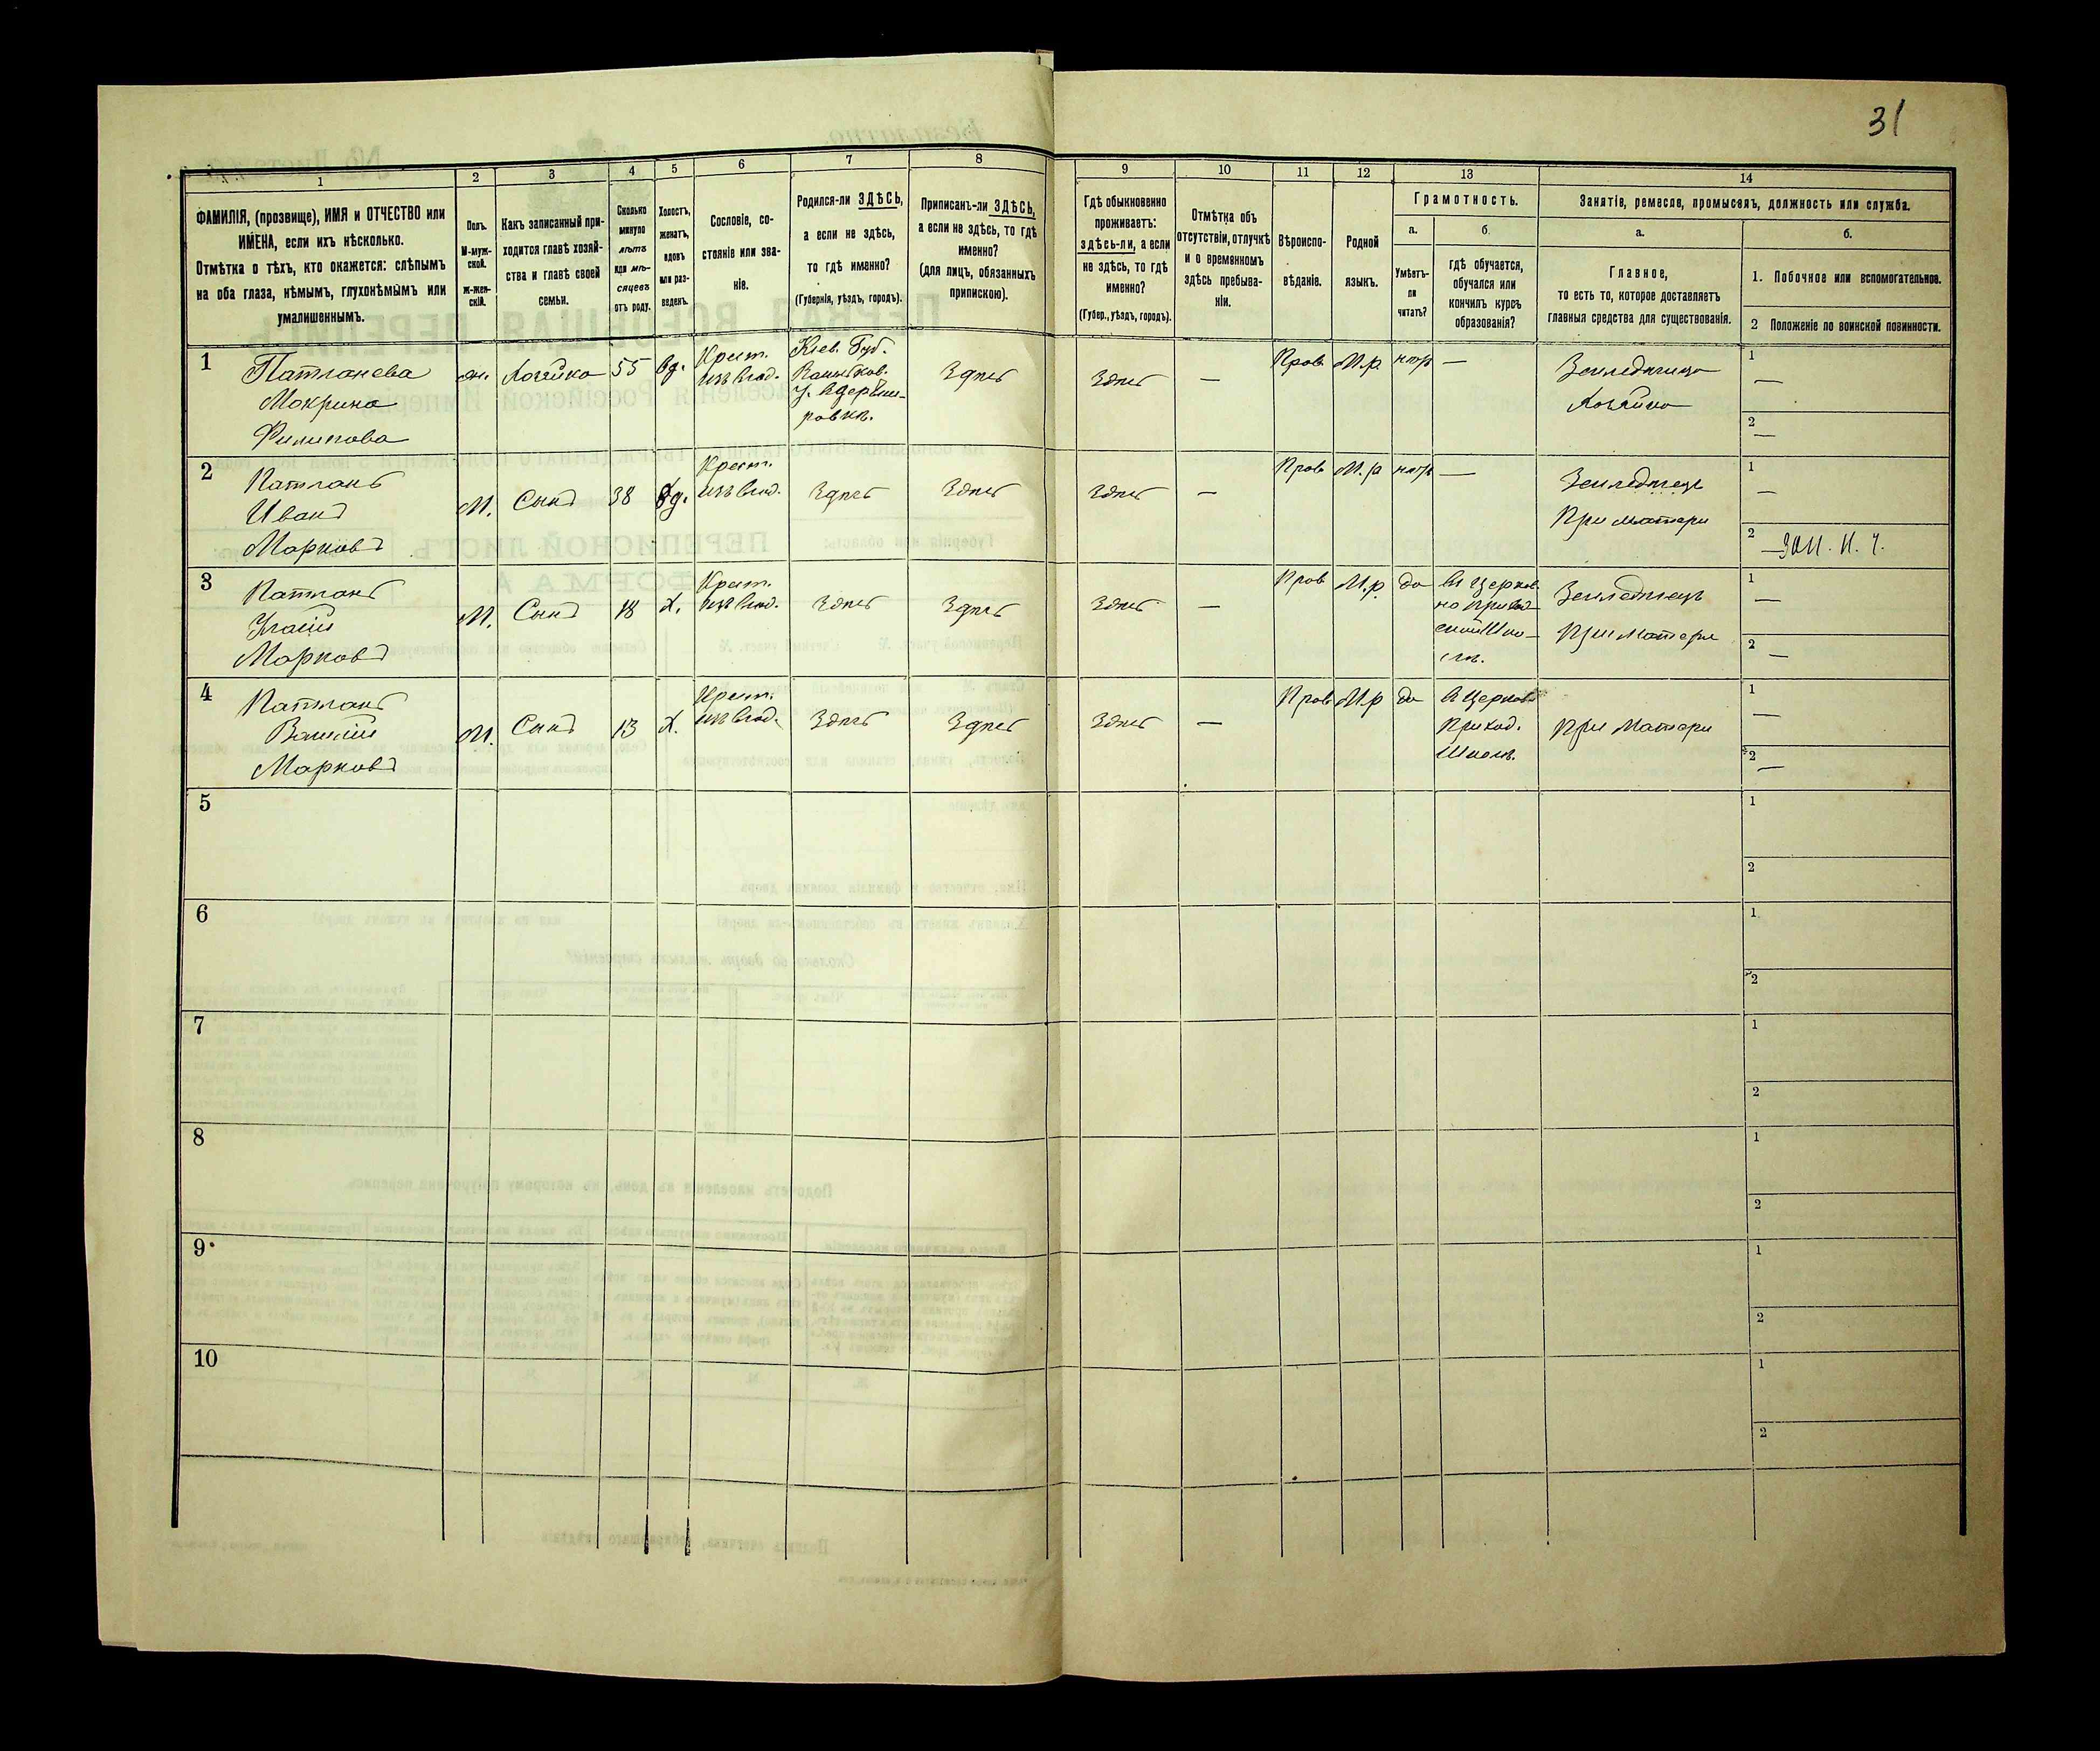 31
1
2
3
4
5
6
7
8
9
10
11
12
13
14
ФАМИЛІЯ, (прозвище), ИМЯ и ОТЧЕСТВО или
ИМЕНА, если ихъ нѣсколько.
Отмѣтка о тѣхъ, кто окажется: слѣпымъ
на оба глаза, нѣмымъ, глухонѣмымъ или
умалишеннымъ.
Полъ.
М-муж-
ской.
Ж-жен-
скій.
Какъ записанный при-
ходится главѣ хозяй-
ства и главѣ своей
семьи.
Сколько
минуло
лѣтъ
или мѣ-
сяцевъ
отъ роду.
Холостъ,
женатъ,
вдовъ
или раз-
веденъ.
Сословіе, со-
стояніе или зва-
ніе.
Родился-ли ЗДѢСЬ,
а если не здѣсь,
то гдѣ именно?
(Губернія, уѣздъ, городъ).
Приписанъ-ли ЗДѢСЬ,
а если не здѣсь, то гдѣ
именно?
(для лицъ, обязанныхъ
припискою).
Гдѣ обыкновенно
проживаетъ:
здѣсь-ли, а если
не здѣсь, то гдѣ
именно?
(Губер., уѣздъ, городъ).
Отмѣтка объ
отсутствіи, отлучкѣ
и о временномъ
здѣсь пребыва-
ніи.
Вѣроиспо-
вѣданіе.
Родной
языкъ.
Грамотность.
а.
Умѣетъ-
ли
читать?
б.
гдѣ обучается,
обучался или
кончилъ курсъ
образованія?
Занятіе, ремесло, промыселъ, должность или служба.
а.
Главное,
то есть то, которое доставляетъ
главныя средства для существованія.
б.
1. Побочное или вспомогательное.
2 Положеніе по воинской повинности.
1
Патланева
Мокрина
Филипова
ж.
Хозяйка
55
Вд.
Крест.
изъ влад.
Кіев. Губ.
Здѣсь
Здѣсь
—
Прав
М.р.
нѣтъ
—
Земледѣлица
Хозяйка
1
—
2
—
2
Патланъ
Иванъ
Марковъ
М.
Сынъ
38
Вд.
Крест.
изъ влад.
Здѣсь
Здѣсь
Здѣсь
—
Прав
М.р
нѣтъ
—
Земледѣлецъ
При матери
1
—
2
3
Патланъ
Марковъ
М.
Сынъ
18
Х.
Крест.
изъ влад.
Здѣсь
Здѣсь
Здѣсь
—
Прав
М.р.
да
Земледѣлецъ
При Матери
1
—
2
—
4
Патланъ
Василій
Марковъ
М.
Сынъ
13
Х.
Крест.
изъ влад.
Здѣсь
Здѣсь
Здѣсь
—
Прав
М.р
да
В Церков
Приход.
Школѣ.
При Матери
1
—
2
—
5
1
2
6
1
2
7
1
2
8
1
2
9
1
2
10
1
2